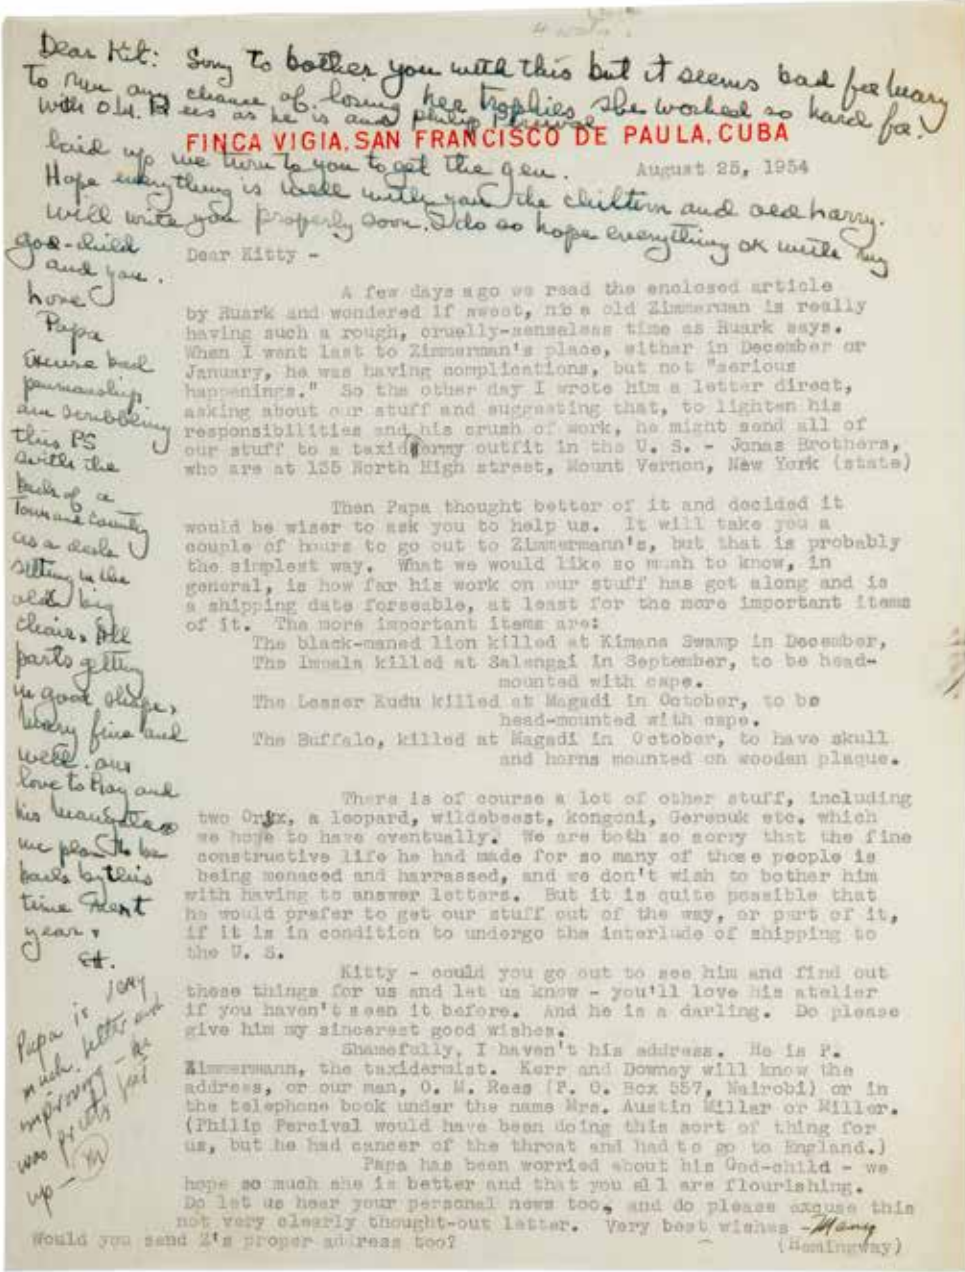 Dear Kit: Sorry to bother you with this but it seems bad for Mary
to run any chance of losing her trophies she worked so hard for.
with old. Rees as he is and Philip Percival
FINCA VIGIA, SAN FRANCISCO DE PAULA, CUBA
laid up we turn to you to get the gen.
August 25, 1954
Hope everything is well with you the children and old harry.
will write you properly soon. I do so hope everything OK with my
god-child
and you.
love
Papa
Excuse bad
penmanship
am scribbling
this PS
with the
back of a
Town and Country
as a desk
sitting in the
old big
chair. All
parts getting
in good shape,
Mary fine and
well. our
love to Ray and
his
we plan to be
back by this
time next
year.
EH.
Papa is very
much better and
improving - he
was pretty beat
up - M
Dear Kitty -
A few days ago we read the enclosed article
by Ruark and wondered if sweet, nice old Zimmerman is really
having such a rough, cruelly-senseless time as Ruark says.
When I went last to Zimmerman's place, either in December or
January, he was having complications, but not "serious
happenings." So the other day I wrote him a letter direct,
asking about our stuff and suggesting that, to lighten his
responsibilities and his crush of work, he might send all of
our stuff to a taxidermy outfit in the U. S. - Jonas Brothers,
who are at 135 North High street, Mount Vernon, New York (state)
Then Papa thought better of it and decided it
would be wiser to ask you to help us. It will take you a
couple of hours to go out to Zimmermann's, but that is probably
the simplest way. What we would like so much to know, in
general, is how far his work on our stuff has got along and is
a shipping date forseable, at least for the more important items
of it. The more important items are:
The black-maned lion killed at Kimana Swamp in December,
The Impala killed at Salengai in September, to be head-
mounted with cape.
The Lesser Kudu killed at Magadi in October, to be
head-mounted with cape.
The Buffalo, killed at Magadi in October, to have skull
and horns mounted on wooden plaque.
There is of course a lot of other stuff, including
two Oryx, a leopard, wildebeest, kongoni, Gerenuk etc. which
we hope to have eventually. We are both so sorry that the fine
constructive life he had made for so many of those people is
being menaced and harrassed, and we don't wish to bother him
with having to answer letters. But it is quite possible that
he would prefer to get our stuff out of the way, or part of it,
if it is in condition to undergo the interlude of shipping to
the U. S.
Kitty - could you go out to see him and find out
these things for us and let us know - you'll love his atelier
if you haven't seen it before. And he is a darling. Do please
give him my sincerest good wishes.
Shamefully, I haven't his address. He is P.
Zimmermann, the taxidermist. Kerr and Downey will know the
address, or our man, O. M. Rees (P. O. Box 557, Nairobi) or in
the telephone book under the name Mrs. Austin Millar or Miller.
(Philip Percival would have been doing this sort of thing for
us, but he had cancer of the throat and had to go to England.)
Papa has been worried about his God-child - we
hope so much she is better and that you all are flourishing.
Do let us hear your personal news too, and do please excuse this
not very clearly thought-out letter. Very best wishes - Mary
Would you send Z's proper address too?
(Hemingway)